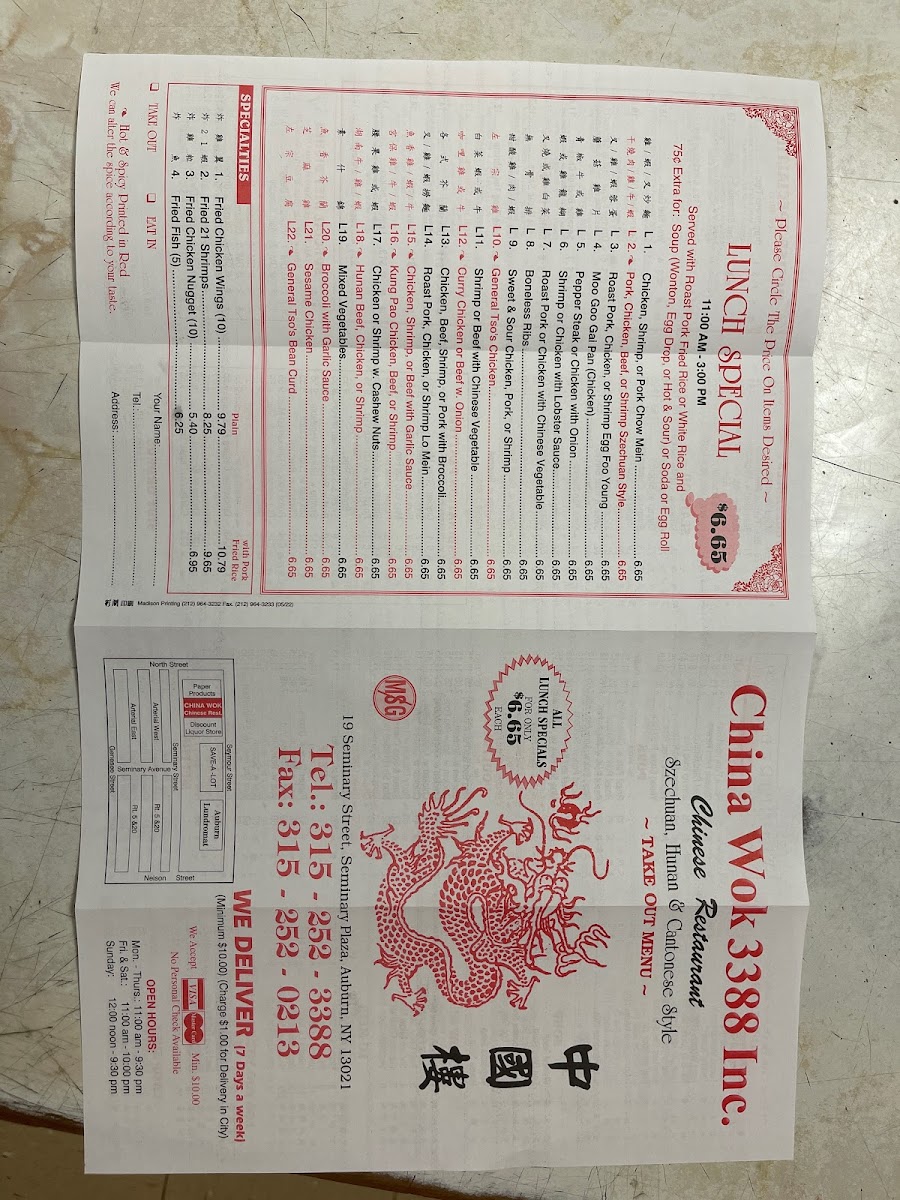 ~ Please Circle The Price On Items Desired ~
LUNCH SPECIAL
$6.65
11:00 AM - 3:00 PM
Served with Roast Pork Fried Rice or White Rice and
75¢ Extra for: Soup (Wonton, Egg Drop, or Hot & Sour) or Soda or Egg Roll
雞/蝦/叉炒麵 L 1. Chicken, Shrimp, or Pork Chow Mein 6.65
干燒肉/雞/牛/蝦 L 2. Pork, Chicken, Beef, or Shrimp Szechuan Style 6.65
叉/雞/蝦蓉蛋 L 3. Roast Pork, Chicken, or Shrimp Egg Foo Young 6.65
蘑菇雞片 L 4. Moo Goo Gai Pan (Chicken) 6.65
青椒牛或雞 L 5. Pepper Steak or Chicken with Onion 6.65
蝦或雞龍糊 L 6. Shrimp or Chicken with Lobster Sauce 6.65
叉燒或雞白菜 L 7. Roast Pork or Chicken with Chinese Vegetable 6.65
無骨排 L 8. Boneless Ribs 6.65
甜酸雞/肉/蝦 L 9. Sweet & Sour Chicken, Pork, or Shrimp 6.65
左宗雞 L10. General Tso's Chicken 6.65
白菜蝦或牛 L11. Shrimp or Beef with Chinese Vegetable 6.65
咖哩雞或牛 L12. Curry Chicken or Beef w. Onion 6.65
各式芥蘭 L13. Chicken, Beef, Shrimp, or Pork with Broccoli 6.65
叉/雞/蝦撈麵 L14. Roast Pork, Chicken, or Shrimp Lo Mein 6.65
魚香雞/蝦/牛 L15. Chicken, Shrimp, or Beef with Garlic Sauce 6.65
宮保雞/牛/蝦 L16. Kung Pao Chicken, Beef, or Shrimp 6.65
腰果雞或蝦 L17. Chicken or Shrimp w. Cashew Nuts 6.65
湖南牛/雞/蝦 L18. Hunan Beef, Chicken, or Shrimp 6.65
素什錦 L19. Mixed Vegetables 6.65
魚香芥蘭 L20. Broccoli with Garlic Sauce 6.65
芝麻雞 L21. Sesame Chicken 6.65
左宗豆腐 L22. General Tso's Bean Curd 6.65
SPECIALTIES
Plain
with Pork Fried Rice
炸雞翼 1. Fried Chicken Wings (10) 9.79 10.79
炸21蝦 2. Fried 21 Shrimps 8.25 9.65
炸雞粒 3. Fried Chicken Nugget (10) 5.40 6.95
炸魚 4. Fried Fish (5) 6.25
❑ TAKE OUT ❑ EAT IN
Hot & Spicy Printed in Red
We can alter the spice according to your taste.
Your Name:
Tel.:
Address:
Madison Printing (212) 964-3232 Fax. (212) 964-3233 (05/22)
China Wok 3388 Inc.
Chinese Restaurant
Szechuan, Hunan & Cantonese Style
~ TAKE OUT MENU ~
ALL
LUNCH SPECIALS
FOR ONLY
$6.65
EACH
中國樓
MSG
19 Seminary Street, Seminary Plaza, Auburn, NY 13021
Tel.: 315 - 252 - 3388
Fax: 315 - 252 - 0213
WE DELIVER (7 Days a week)
(Minimum $10.00) (Charge $1.00 for Delivery in City)
We Accept VISA MasterCard Min. $10.00
No Personal Check Available
OPEN HOURS:
Mon. - Thurs.: 11:00 am - 9:30 pm
Fri. & Sat.: 11:00 am - 10:00 pm
Sunday: 12:00 noon - 9:30 pm
Seymour Street
Paper Products
CHINA WOK Chinese Rest.
Discount Liquor Store
SAVE-A-LOT
Auburn Lundromat
North Street
Seminary Street
Arterial West
Rt. 5 &20
Seminary Avenue
Arterial East
Rt. 5 &20
Genesee Street
Nelson Street